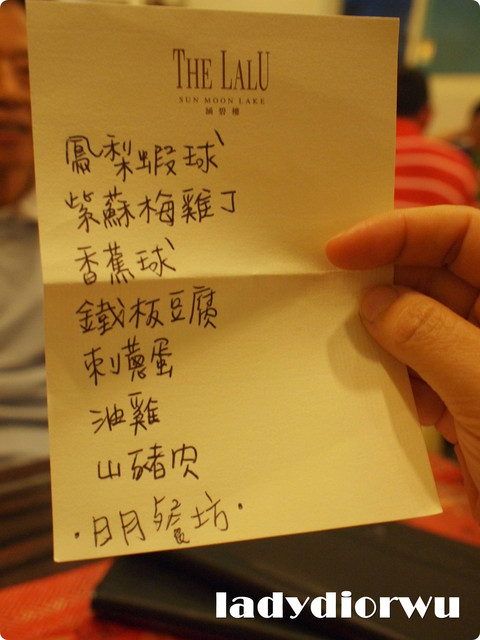 THE LALU
SUN MOON LAKE
涵碧樓
鳳梨蝦球
紫蘇梅雞丁
香蕉球
鐵板豆腐
刺蔥蛋
油雞
山豬肉
·日月餐坊·
ladydiorwu